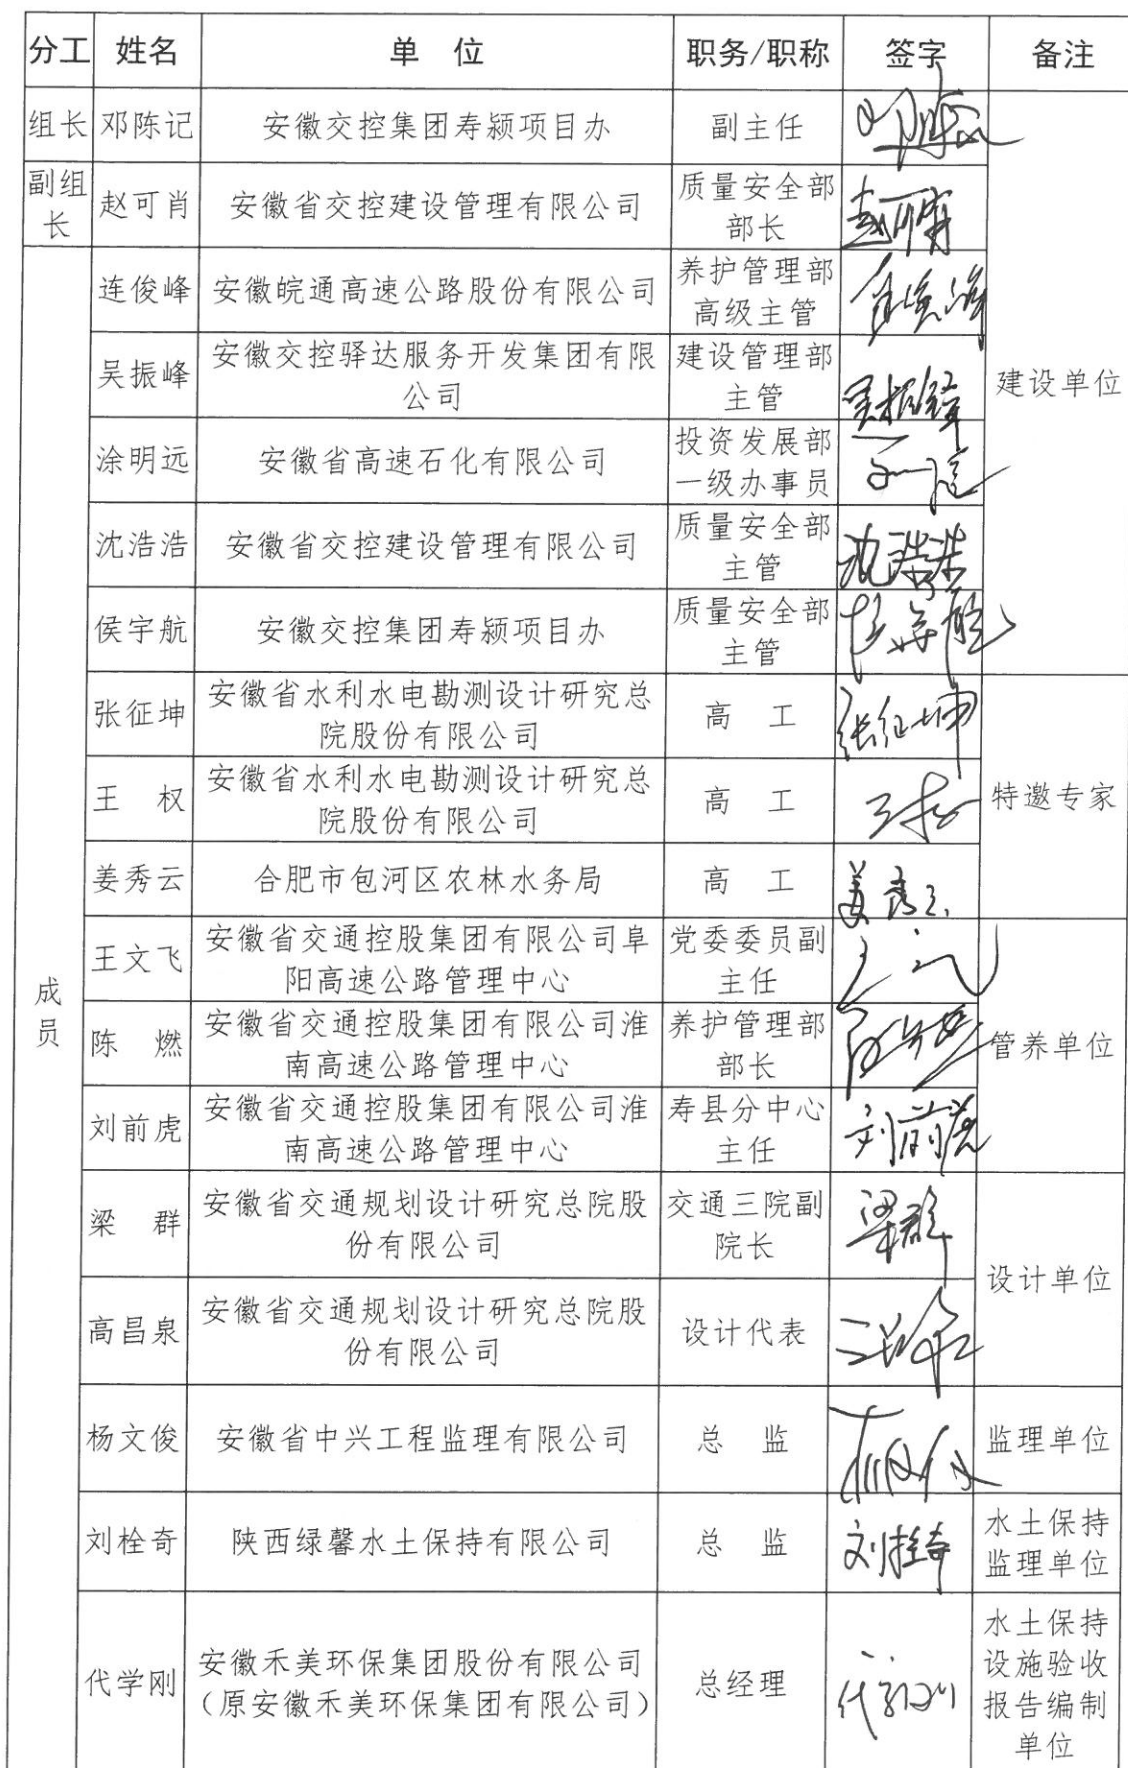 分工 姓名 单 位 职务/职称 签字 备注
组长 邓陈记 安徽交控集团寿颍项目办 副主任
副组 质量安全部
长 赵可肖 安徽省交控建设管理有限公司 部长 赵可肖
连俊峰 安徽皖通高速公路股份有限公司 养护管理部
高级主管
吴振峰 安徽交控驿达服务开发集团有限 建设管理部
公司 主管 吴振峰 建设单位
涂明远 安徽省高速石化有限公司 投资发展部
一级办事员
沈浩浩 安徽省交控建设管理有限公司 质量安全部
主管 沈浩浩
侯宇航 安徽交控集团寿颍项目办 质量安全部
主管
张征坤 安徽省水利水电勘测设计研究总
院股份有限公司 高 工 张征坤
王 权 安徽省水利水电勘测设计研究总
院股份有限公司 高 工 王权 特邀专家
姜秀云 合肥市包河区农林水务局 高 工 姜秀云
王文飞 安徽省交通控股集团有限公司阜 党委委员副
阳高速公路管理中心 主任
成
员
陈 燃 安徽省交通控股集团有限公司淮 养护管理部
南高速公路管理中心 部长 陈燃 管养单位
刘前虎 安徽省交通控股集团有限公司淮 寿县分中心
南高速公路管理中心 主任 刘前虎
梁 群 安徽省交通规划设计研究总院股 交通三院副
份有限公司 院长 梁群
设计单位
高昌泉 安徽省交通规划设计研究总院股
份有限公司 设计代表
杨文俊 安徽省中兴工程监理有限公司 总 监 监理单位
刘栓奇 陕西绿馨水土保持有限公司 总 监 刘栓奇 水土保持
监理单位
代学刚 安徽禾美环保集团股份有限公司
（原安徽禾美环保集团有限公司） 总经理 代学刚 水土保持
设施验收
报告编制
单位